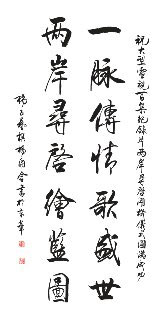 祝大型電視百集紀錄片兩岸尋啓開機儀式圓滿成功
一脈傳情歌盛世
兩岸尋啓繪藍圖
書於京華